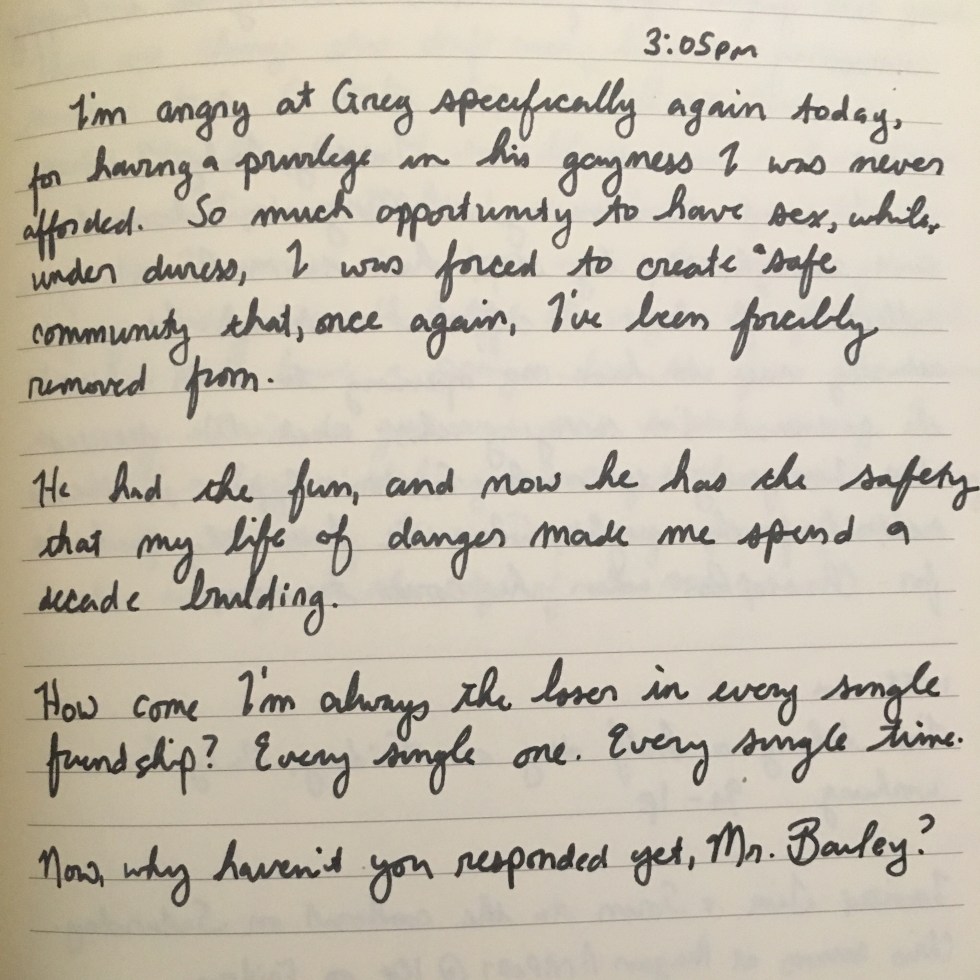 3:05pm
I'm angry at Greg specifically again today,
for having a privilege in his gayness I was never
afforded. So much opportunity to have sex, while,
under duress, I was forced to create a safe
community that, once again, I've been forcibly
removed from.
He had the fun, and now he has the safety
that my life of danger made me spend a
decade building.
How come I'm always the loser in every single
friendship? Every single one. Every single time.
Now, why haven't you responded yet, Mr. Bailey?